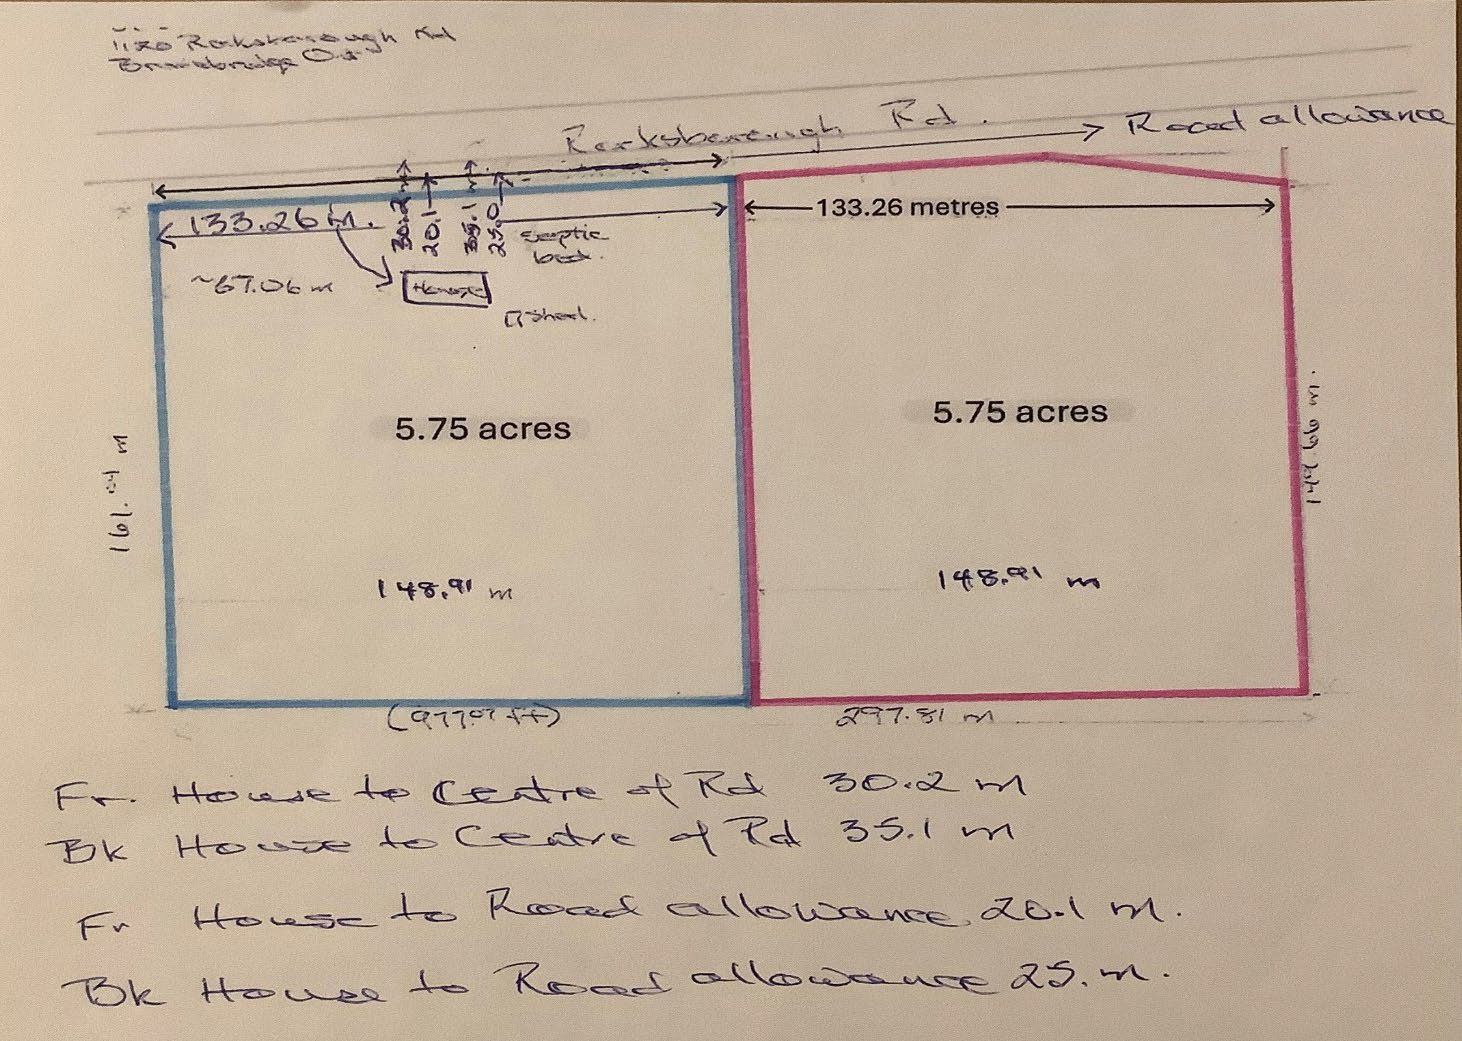 Rd
Ont
Rd.
Road allowance
133.26 m.
133.26 metres
30.2
20.1
35.1
25.0
septic
bed.
~67.06 m
House
Shed.
5.75 acres
5.75 acres
161.04 m
148.91 m
148.91 m
(977.07 ft)
297.81 m
Fr. House to Centre of Rd 30.2 m
Bk House to Centre of Rd 35.1 m
Fr House to Road allowance 20.1 m.
Bk House to Road allowance 25. m.